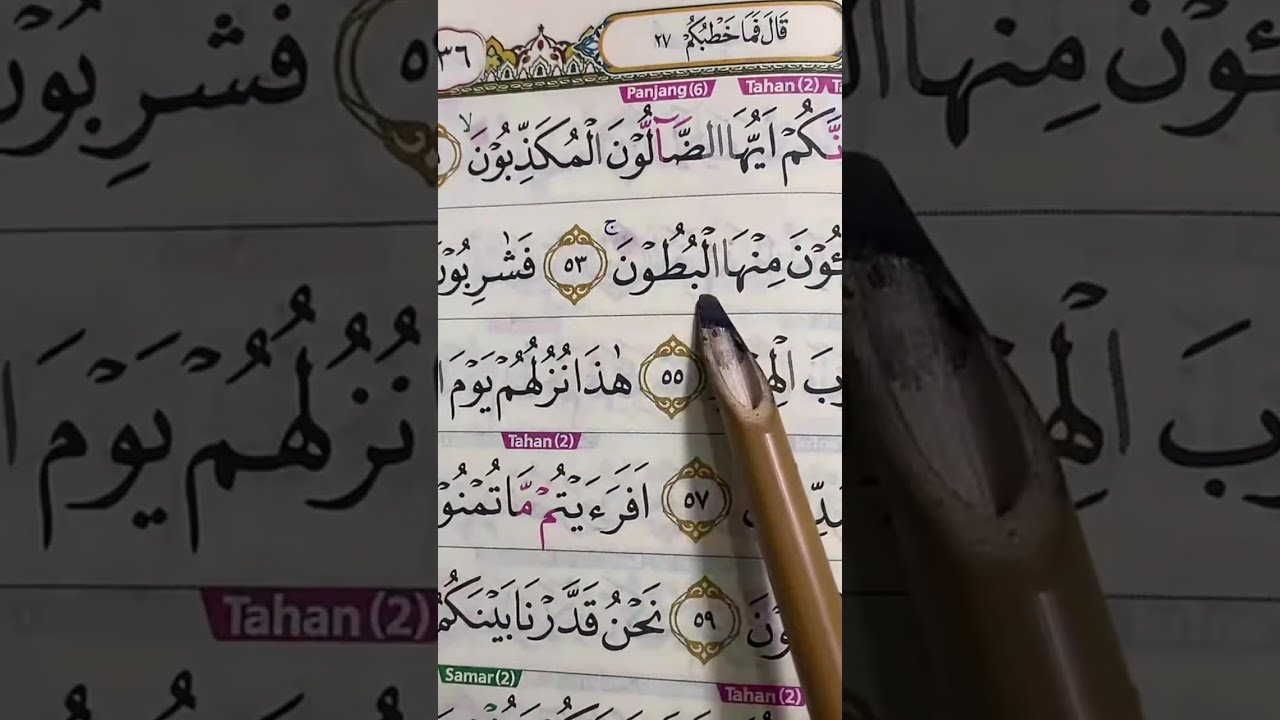 ٣٦ قَالَ فَمَا خَطْبُكُمْ ٢٧
Panjang (6) Tahan (2)
نَّكُمْ اَيُّهَا الضَّاۤلُّوْنَ الْمُكَذِّبُوْنَۙ
ـُٔوْنَ مِنْهَا الْبُطُوْنَۚ ٥٣ فَشٰرِبُوْنَ
بَ الْهِ ٥٥ هٰذَا نُزُلُهُمْ يَوْمَ ا
Tahan (2)
٥٧ اَفَرَءَيْتُمْ مَّا تُمْنُوْ
وْنَ ٥٩ نَحْنُ قَدَّرْنَا بَيْنَكُمُ
Samar (2) Tahan (2)